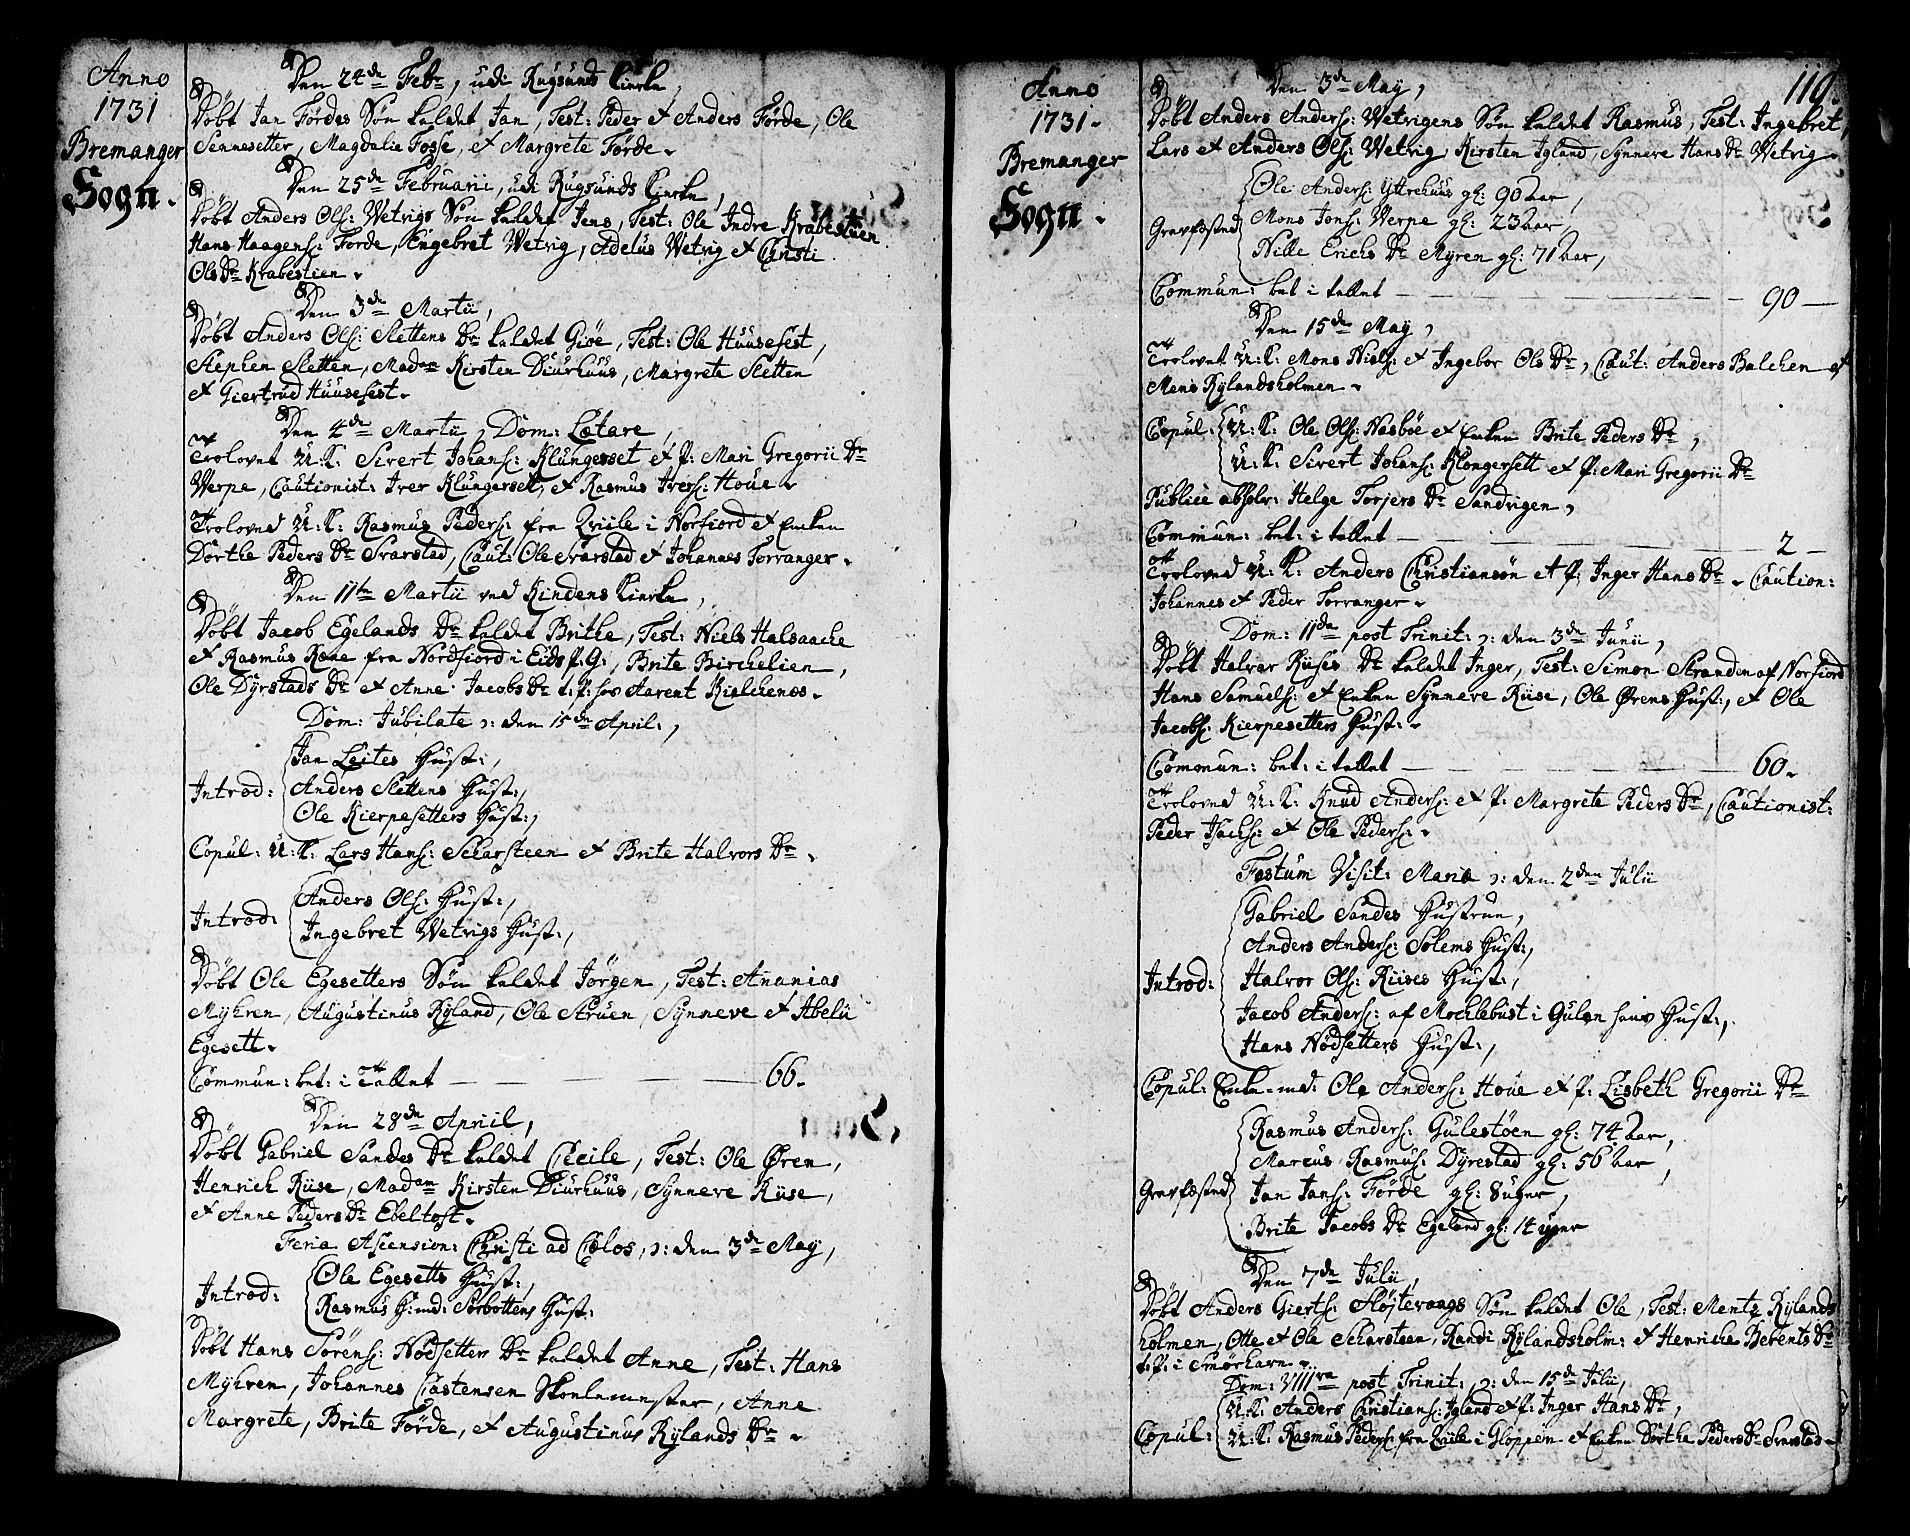 Anno
1731
Bremanger
Sogn.
Den 24de Febr, udi Rugsunds Kierke,
Döbt Jan Fördes Sön kaldet Jan, Test: Peder et Anders Förde, Ole
Sennesetter, Magdalie Fosse, et Margrete Förde.
Den 25de Februarii, udi Rugsunds Kierke,
Döbt Anders Ols: Wetvigs Sön kaldet Jens, Test: Ole Indre Krabestöen
Hans Haagens: Förde, Engebret Wetvig, Adelus Wetvig et Christi
Ols Dr Krabestien.
Den 3de Martii,
Döbt Anders Ols: Slettens Dr kaldet Giöe, Test: Ole Huusefest,
Stephen Sletten, Madam Kirsten Diurhuus, Margrete Sletten
et Giertrud Huusefest.
Den 4de Martii, Dom: Lætare,
Trolovet U:K: Sivert Johans: Klungerset et P: Mari Gregorii Dr
Werpe, Cautionist: Iver Klungerset, et Rasmus Ivers: Houe.
Troloved U:K: Rasmus Peders: fra Qviile i Norfiord et Enken
Dorthe Peders Dr Svarstad, Caut: Ole Svarstad et Johannes Torranger.
Den 11te Martii ved Kindens Kierke,
Döbt Jacob Egelands Dr kaldet Brithe, Test: Niels Halsaache
et Rasmus Rone fra Nordfiord i Eids P.G., Brite Birchelien,
Ole Dyrstads Dr et Anne Jacobs Dr t:P: hos Aarent Kielchenes.
Dom: Jubilate ɔ: den 15de April:,
Introd:
Jan Leites Hust:,
Anders Slettens Hust:,
Ole Kierpesetters Hust:,
Copul: U:K: Lars Hans: Scharsteen et Brite Halvors Dr.
Introd:
Anders Ols: Hust:,
Ingebret Wetvigs Hust:,
Döbt Ole Egesetters Sön kaldet Jörgen, Test: Ananias
Myhren, Augustinus Ryland, Ole Struen, Synneve et Abelü
Egesett.
Commun: bet: i Tallet — 66.
Den 28de Apriil,
Döbt Gabriel Sandes Dr kaldet Cecile, Test: Ole Øren,
Henrich Riise, Madam Kirsten Diurhuus, Synneve Riise,
et Anne Peders Dr Ebeltoft.
Feria Ascension: Christi ad Coelos, ɔ: den 3de May,
Introd:
Ole Egesetts Hust:,
Rasmus H:md: Sörbottens Hust:
Döbt Hans Sörens: Nödsetters Dr kaldet Anne, Test: Hans
Myhren, Johannes Castensen Skolemester, Anne
Margrete, Brite Förde, et Augustinus Rylands Dr.
Anno
1731.
Bremanger
Sogn.
119.
Den 3de May,
Döbt Anders Anders: Wetvigens Sön kaldet Rasmus, Test: Ingebret,
Lars et Anders Ols: Wetvig, Kirsten Igland, Synneve Hans Dr Wetvig.
Gravfæsted
Ole Anders: Yttrehuus gl: 90 aar,
Mons Jons: Werpe gl: 23 aar,
Nille Erichs Dr Myren gl: 71 aar,
Commun: bet: i tallet — 90 —
Den 15de May,
Trolovet U:K: Mons Niels: et Ingebor Ols Dr, Caut: Anders Balchen et
Mons Rylandsholmen.
Copul:
U:K: Ole Ols: Nasböe et Enken Brite Peders Dr,
U:K: Sivert Johans: Klongersett et P: Mari Gregorii Dr
Publice absolv: Helge Torjers Dr Sandvigen,
Commun: bet: i tallet — 2 —
Troloved U:K: Anders Christiansön et P: Inger Hans Dr. Caution:
Johannes et Peder Torranger.
Dom: 11da post Trinit: ɔ: den 3de Junii,
Döbt Halvor Riises Dr kaldet Inger, Test: Simon Stranden af Norfiord
Hans Samuels: et Enken Synneve Riise, Ole Ørens Hust:, et Ole
Jacobs: Kierpesetters Hust:.
Commun: bet: i tallet — 60.
Trolovet U:K: Knud Anders: et P: Margrete Peders Dr, Cautionist:
Peder Isachs: et Ole Peders:.
Festum Visit: Mariæ ɔ: den 2den Julii
Introd:
Gabriel Sandes Hustrue,
Anders Anders: Solems Hust:,
Halvor Ols: Riises Hust:,
Jacob Anders: af Mochlebust i Gulen hans Hust:,
Hans Nödsetters Hust:,
Copul: Enke-md: Ole Anders: Houe et P: Lisbeth Gregorii Dr
Gravfæsted
Rasmus Anders: Gulestöen gl: 74 aar,
Marcus Rasmus: Dyrestad gl: 56 aar,
Jan Jans: Förde gl: 8 uger,
Brite Jacobs Dr Egeland gl: 14 uger
Den 7de Julii,
Döbt Anders Gierts: Flöjtevaags Sön kaldet Ole, Test: Mentz Rylands
holmen, Otte et Ole Scharsteen, Randi Rylandsholm: et Henriche Berents Dr
t:P: i Smörhavn.
Dom: VIIIva post Trinit:, ɔ: den 15de Julii,
Copul:
U:K: Anders Christians: Igland et P: Inger Hans Dr,
U:K: Rasmus Peders: fra Qviile i Gloppen et Enken Dorthe Peders Dr Svarstad.